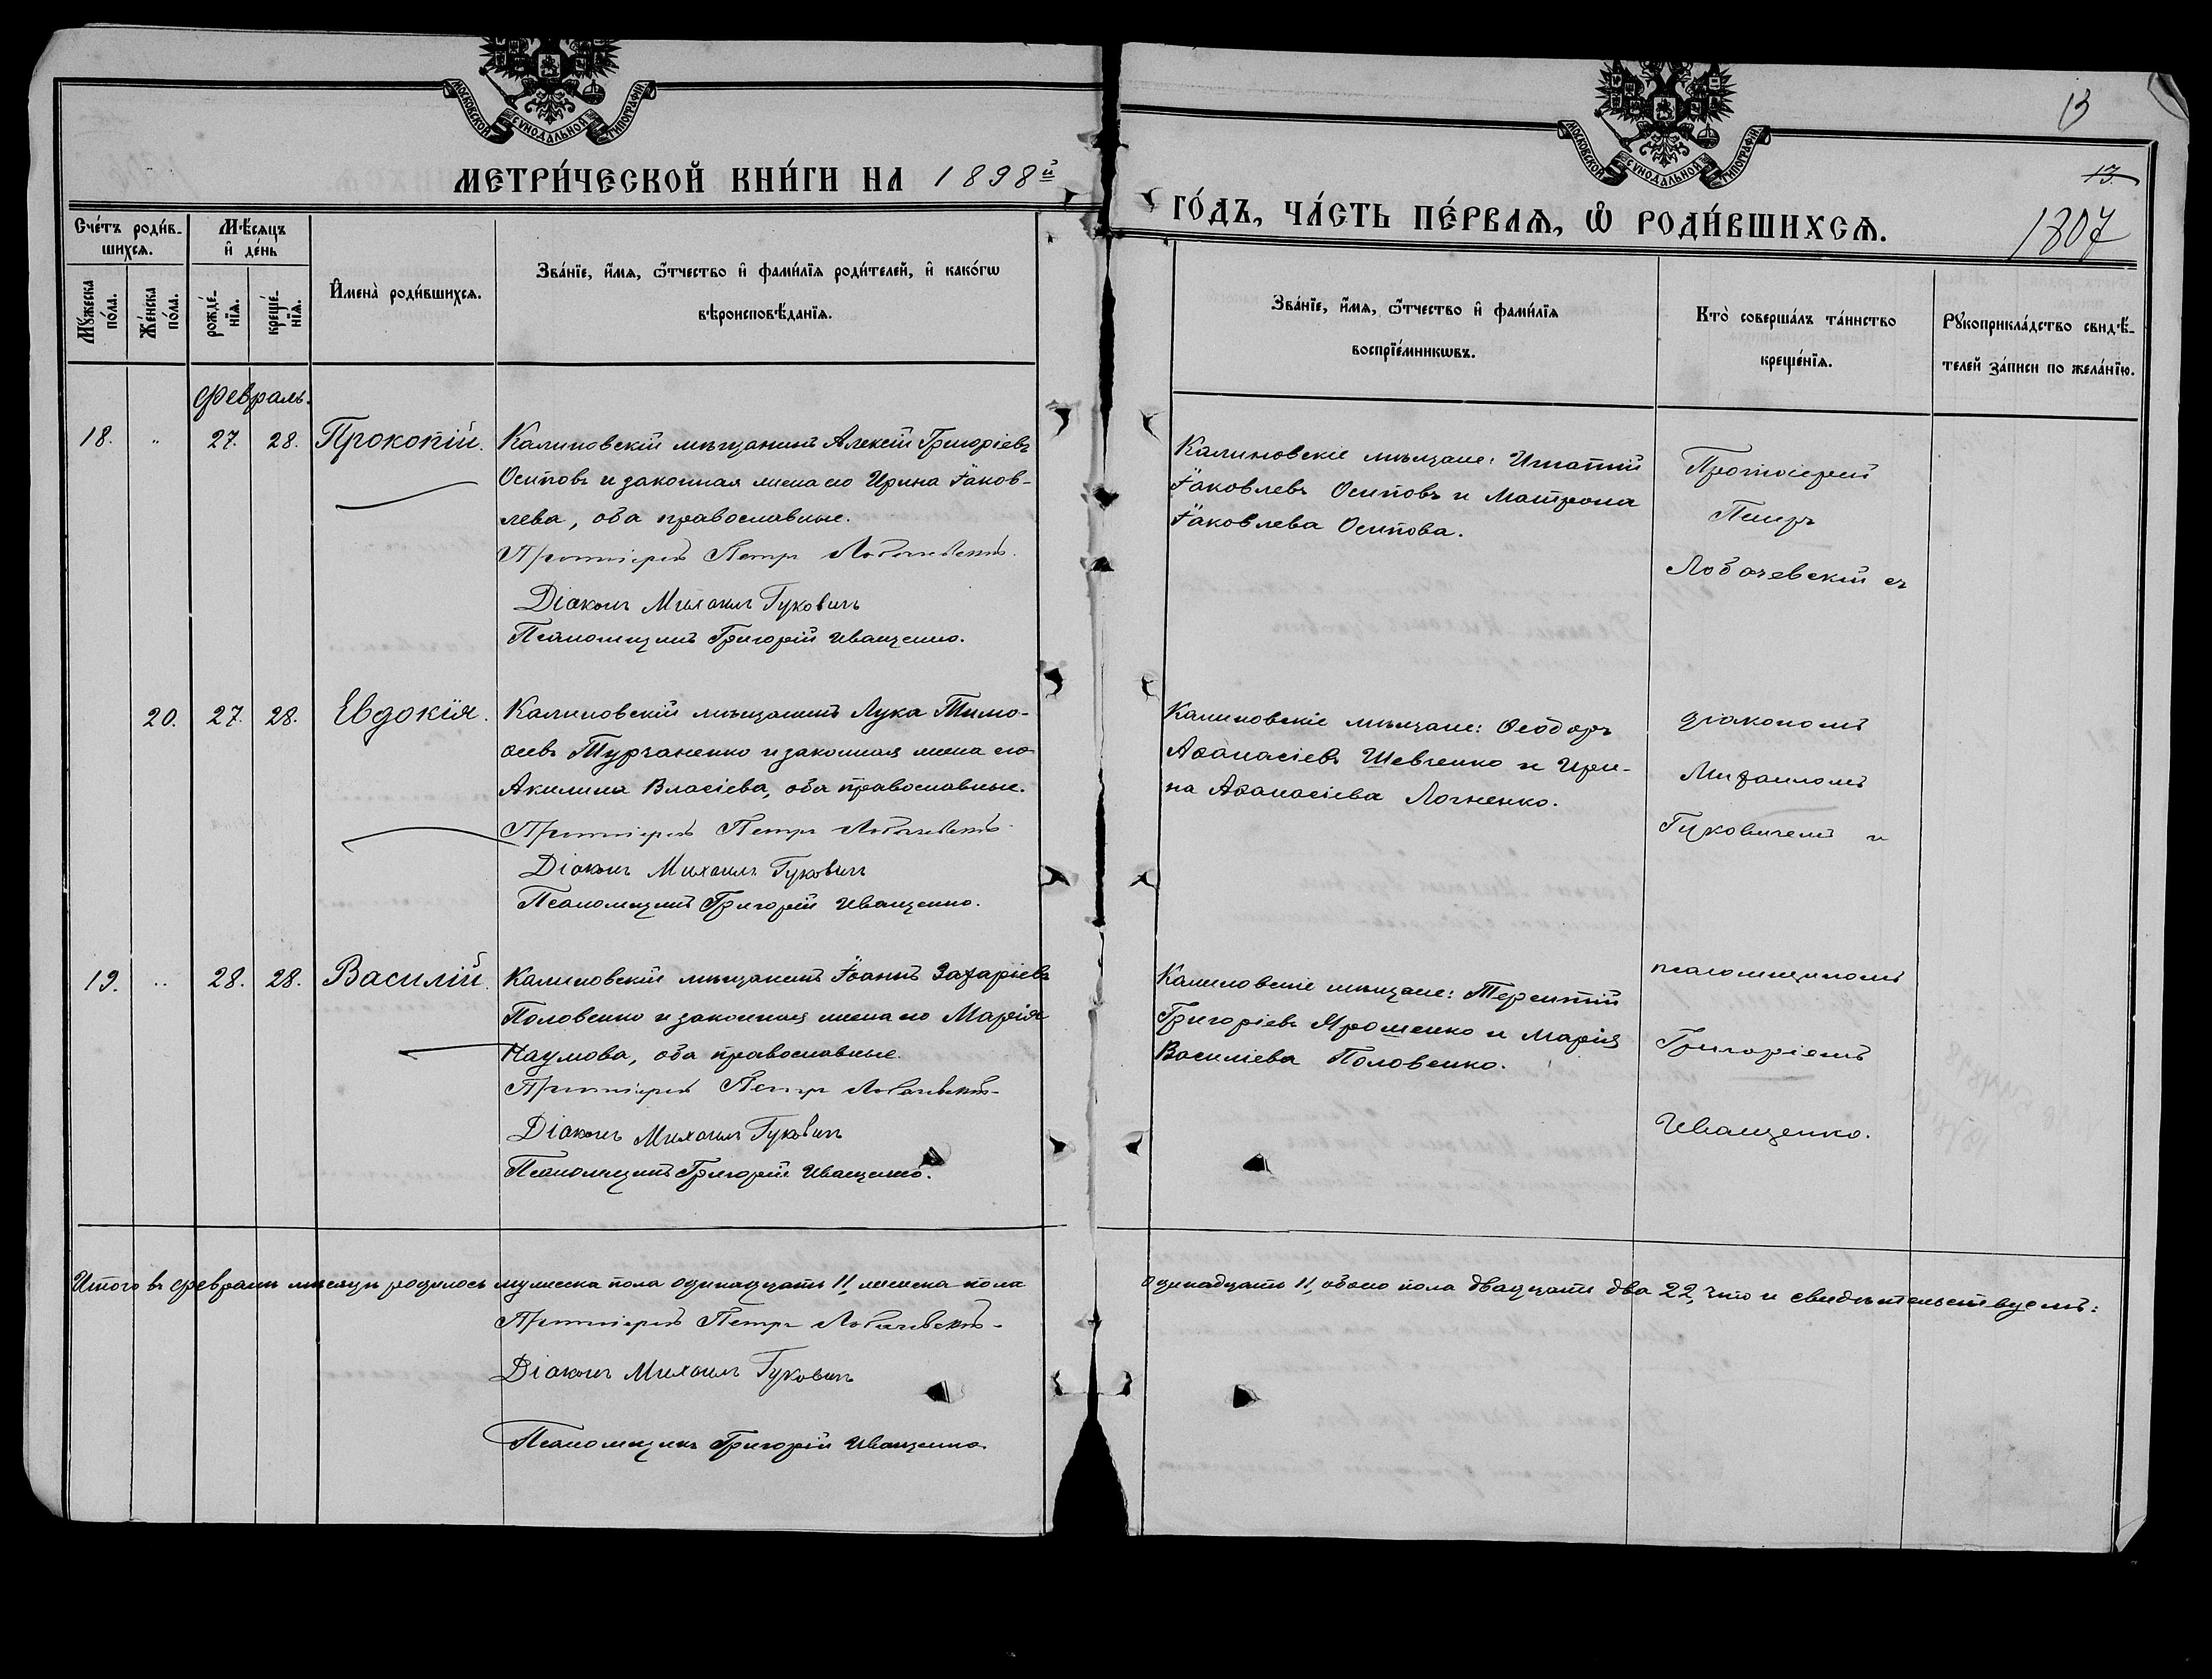 МОСКОВСКОЙ СѴНОДАЛЬНОЙ ТИПОГРАФІИ
МОСКОВСКОЙ СѴНОДАЛЬНОЙ ТИПОГРАФІИ
13
13.
МЕТРИ́ЧЕСКОЙ КНИ́ГИ НА 1898й
ГО́ДЪ, ЧА́СТЬ ПЕ́РВАѦ, Ѡ҆ РОДИ́ВШИХСѦ.
1807
Сче́тъ роди́в-
шихсѧ.
Мѣ́сѧцъ
и҆ де́нь
Мꙋ́жеска
по́ла.
Же́нска
по́ла.
рожде́-
нїѧ.
креще́-
нїѧ.
И҆мена̀ роди́вшихсѧ.
Зва́нїе, и҆́мѧ, ѻ҆́тчество и҆ фами́лїѧ роди́телей, и҆ како́гѡ
вѣроисповѣ́данїѧ.
Зва́нїе, и҆́мѧ, ѻ҆́тчество и҆ фами́лїѧ
воспрїе́мникѡвъ.
Кто̀ соверша́лъ та́инство
креще́нїѧ.
Рꙋкоприкла́дство свидѣ́-
телей за́писи по жела́нїю.
Февраль.
18. „ 27. 28. Прокопій.
Калиновскій мѣщанинъ Алексій Григоріевъ
Осиповъ и законная жена его Ирина Іаков-
лева, оба православные.
Протоіерей Петръ Лобачевскій.
Діаконъ Михаилъ Гуковичъ
Псаломщикъ Григорій Иващенко.
Калиновскіе мѣщане: Игнатій
Іаковлевъ Осиповъ и Матрона
Іаковлева Осипова.
Протоіерей
Петръ
Лобачевскій съ
20. 27. 28. Евдокія.
Калиновскій мѣщанинъ Лука Тимо-
ѳеевъ Турчаненко и законная жена его
Акилина Власіева, оба православные.
Протоіерей Петръ Лобачевскій.
Діаконъ Михаилъ Гуковичъ
Псаломщикъ Григорій Иващенко.
Калиновскіе мѣщане: Ѳеодоръ
Аѳанасіевъ Шевченко и Ири-
на Аѳанасіева Логненко.
діакономъ
Михаиломъ
Гуковичемъ и
19. „ 28. 28. Василій.
Калиновскій мѣщанинъ Іоаннъ Захаріевъ
Половенко и законная жена его Марія
Наумова, оба православные.
Протоіерей Петръ Лобачевскій
Діаконъ Михаилъ Гуковичъ
Псаломщикъ Григорій Иващенко.
Калиновскіе мѣщане: Терентій
Григоріевъ Ярошенко и Марія
Василіева Половенко.
псаломщикомъ
Григоріемъ
Иващенко.
Итого въ февралѣ мѣсяцѣ родилось мужеска пола одинадцать 11, женска пола
одинадцать 11, обоего пола двадцать два 22, что и свидѣтельствуемъ:
Протоіерей Петръ Лобачевскій
Діаконъ Михаилъ Гуковичъ
Псаломщикъ Григорій Иващенко.